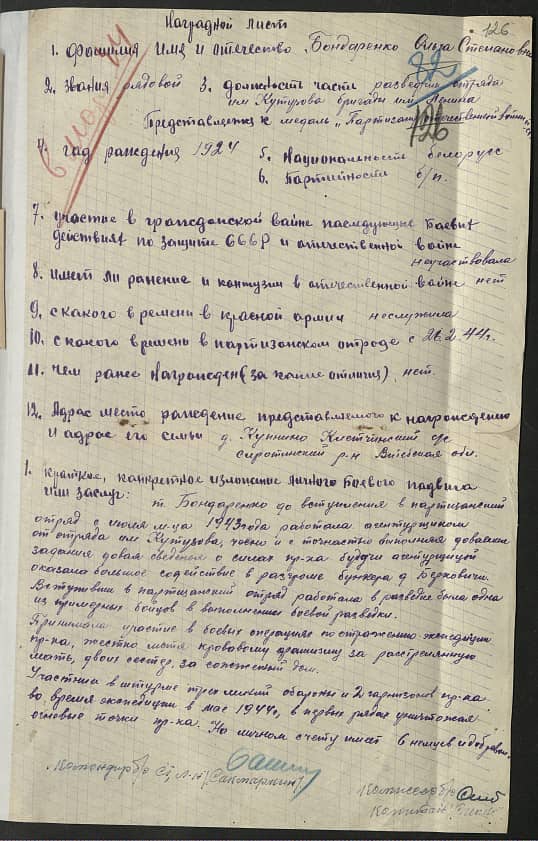 126
Наградной лист
1. Фамилия имя и отчество Бондаренко Степановна
2. Звания рядовой 3. должность часть разведчик отряда
им Кутузова бригады им Ленина
Представляется к медаль "Партизан отечественной войны"
126
4. год рождения 1924 5. Национальность белорус
6. Партийность б/п.
7. участие в гражданской вайне последующие боевых
действиях по защите СССР и отечественной войне
неучаствовала
8. имет ли ранение и контузии в отечественной войне нет
9. с какого времени в красной армии неслужила
10. с какого времени в партизонском отроде с 2.44г.
11. Чем ранее награжден (за какие отличия) нет.
12. Адрас место рождение представляемого к награждению
и адрас его семьи д. с/с
сиротинский р-н Витебская обл.
1. краткое, конкретное изложение личного боевого подвига
или заслуг: т. Бондаренко до вступления в партизанский
отряд с июля м-ца 1943 года работала агентурщиком
от отряда им Кутузова, и с точностью выполняя
задания довая сведения о силах пр-ка будучи агентурщицой
оказала большое содействие в разгроме бункера д
Вступивши в партизанский отряд работала в разведке была одна
из примерных бойцов в выполнении боевой разведки.
Принимала участие в боевых операциях по отражению экспедиции
пр-ка, жестко мстя кровавому фашизму за расстрелянную
мать, двоих сестер, за сожженый дом.
Участница в штурме трех линий обороны и 2 гарнизонов пр-ка.
во время экспедиции в мае 1944г, в первых рядах уничтожая
огневые точки пр-ка. На личном счету имет 6 немцев и
Командир б/о
Комиссар б/о
Капитан